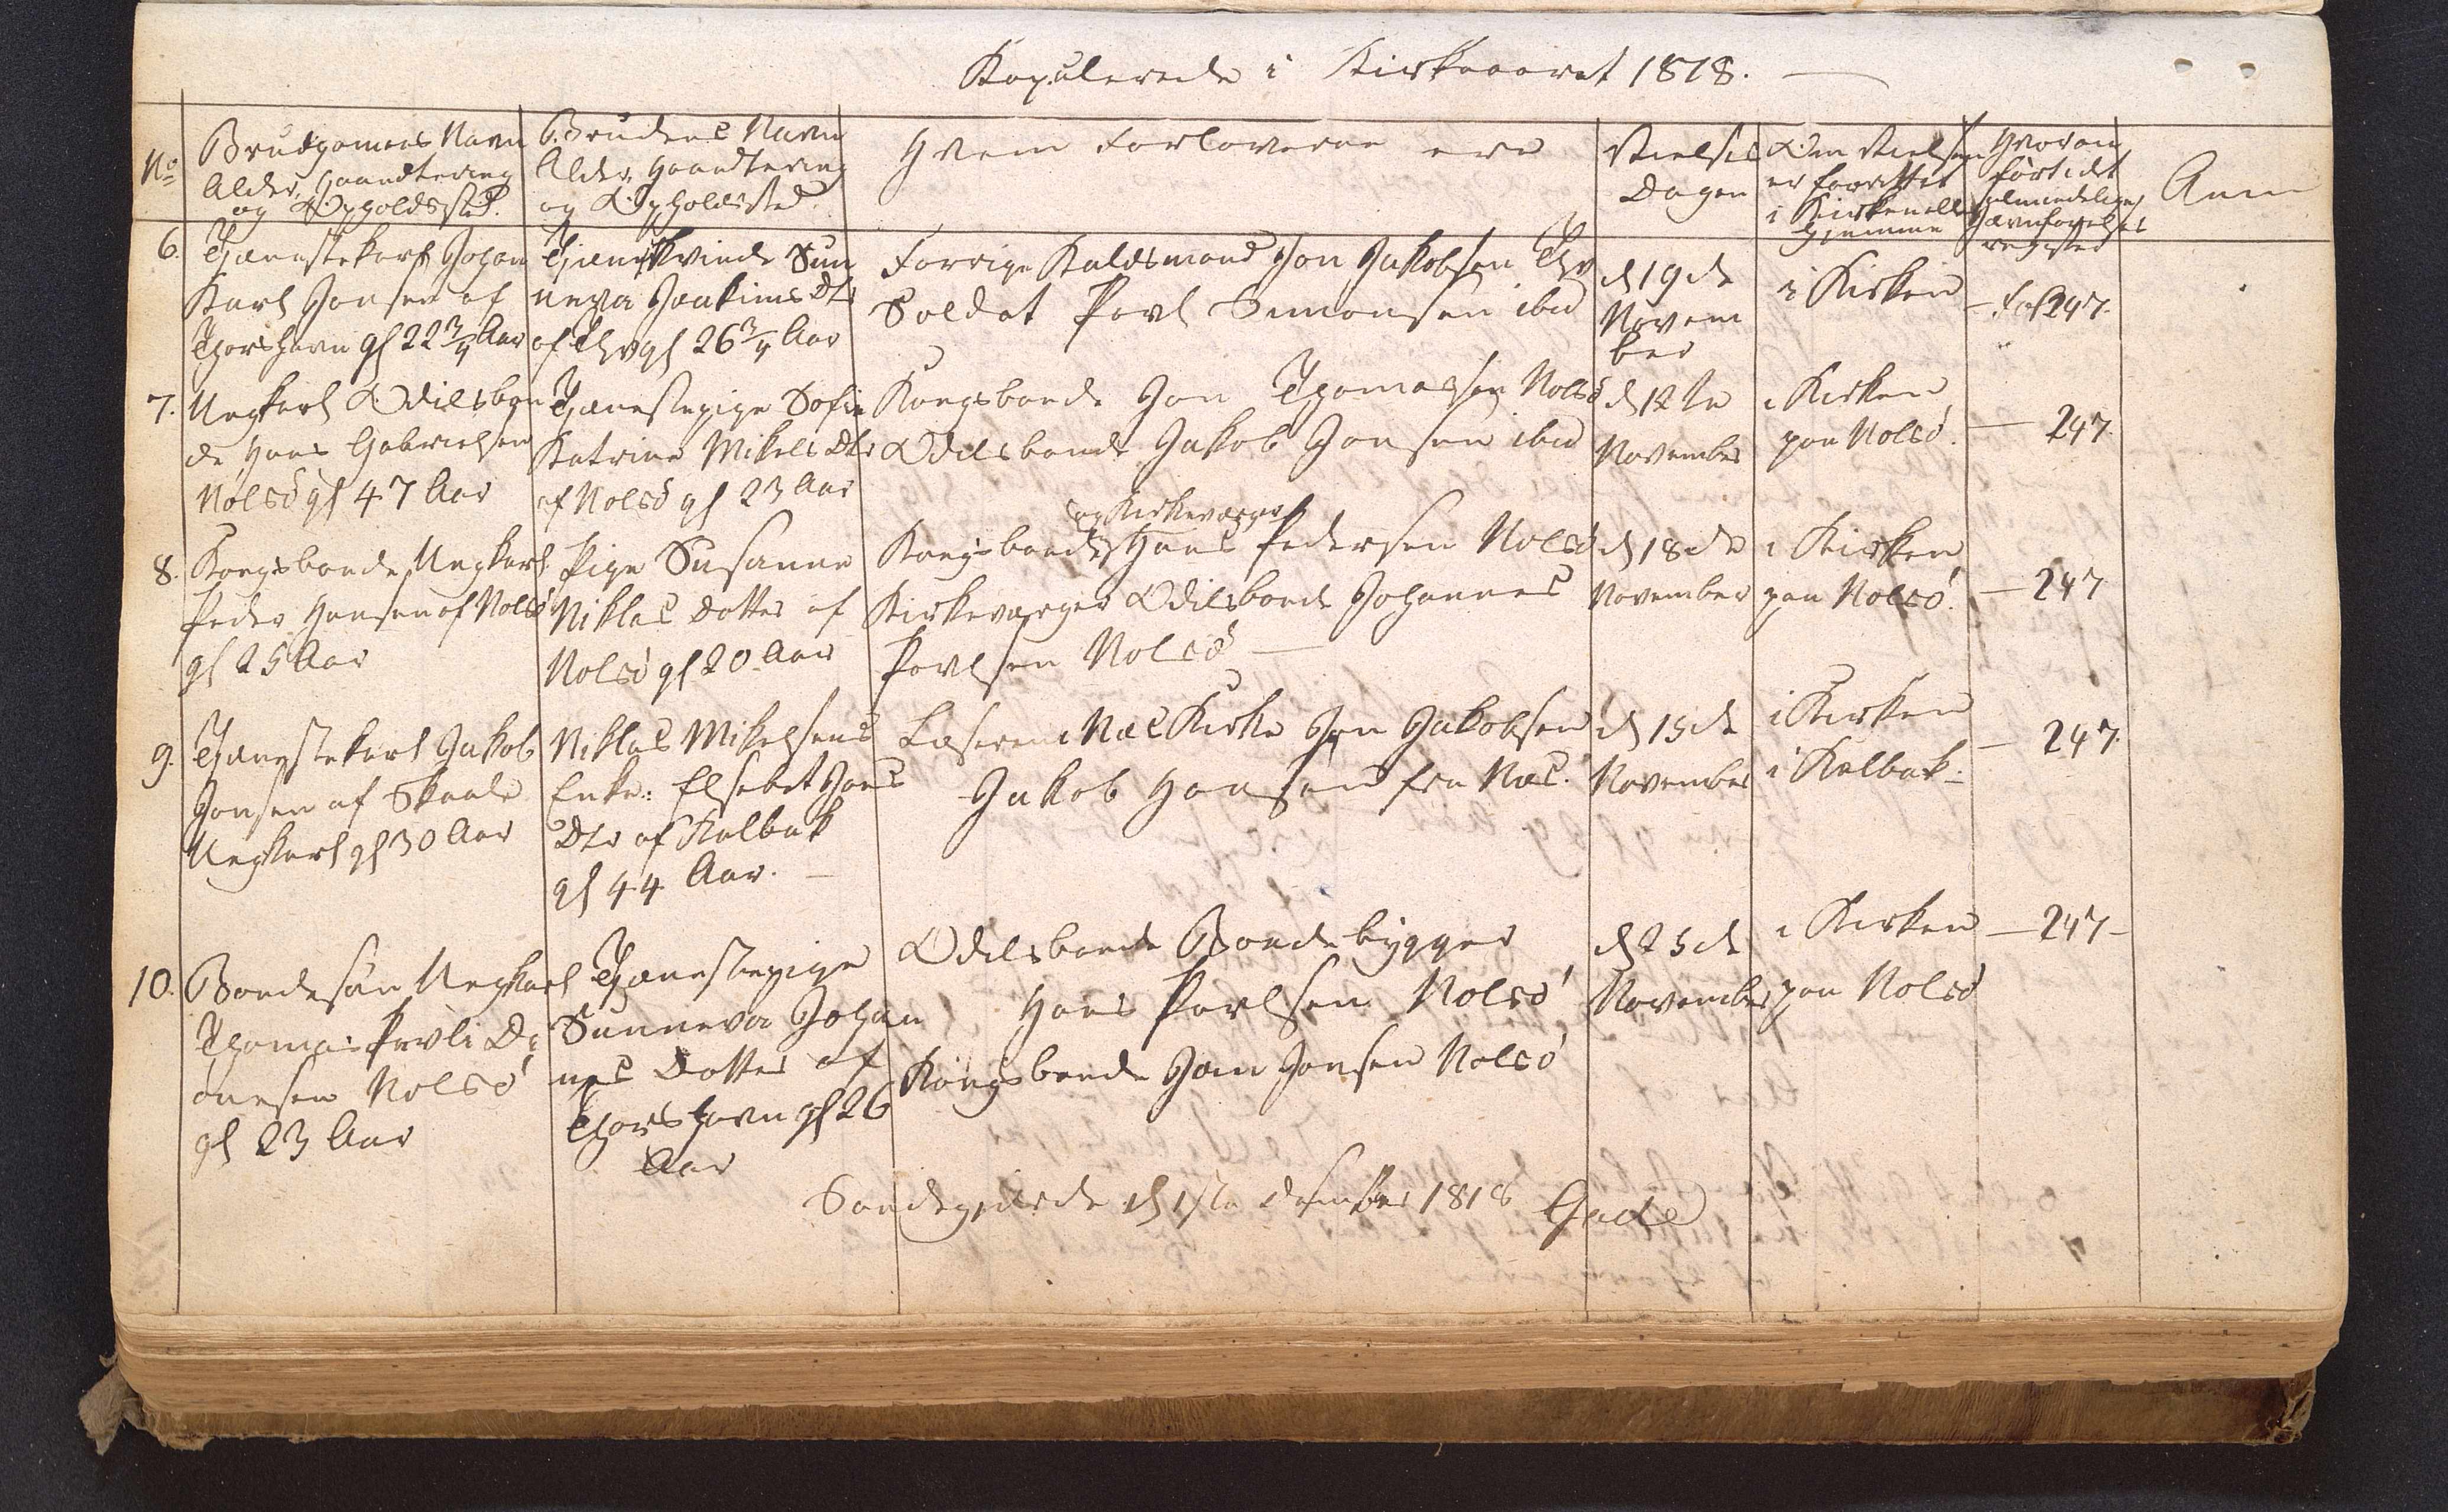 Kopulerede i Kirkeaaret 1818.
No
Brudgomens Navn
Alder, Haandtering
og Opholdssted.
Brudens Navn
Alder, Haandtering
og Opholdssted
Hvem Forloverne ere
Vielses
Dagen
Om Vielsen
er forrettet
i Kirken eller
Hjemme
Hvoran
ført i det
almindelige
Jævnførelses
register
Anm
6.
Tjænestekarl Johan
Karl Jonsen af
Thorshavn gl 22 3/4 Aar
Tjænistkvinde Sun
neva Joakims Dtr
af Thv gl 26 3/4 Aar
Forrige Kaldsmand Jon Jakobsen Thv
Soldat Povl Simonsen ibid
d 19de
Novem
ber
i Kirken
Fol 247.
7.
Ungkarl Odelsbon
de Hans Gabrielsen
Nolsö gl 47 Aar
Tjænestepige Sofie
Katrine Mikels Dtr
af Nolsö gl 23 Aar
Kongsbonde Jon Thomassen Nolsö
Odelsbonde Jakob Jonsen ibid
d 12te
November
i Kirken
paa Nolsö.
— 247.
8.
Kongsbonde Ungkarl
Peder Hansen af Nolsö
gl 25 Aar
Pige Susanne
Niklas Datter af
Nolsö gl 20 Aar
og Kirkeværge
Kongsbonde Hans Pedersen Nolsö
Kirkeværger Odelsbonde Johannes
Povlsen Nolsö —
d 18de
November
i Kirken
paa Nolsö.
— 247
9.
Tjænestekarl Jakob
Jonsen af Skaale
Ungkarl gl 30 Aar
Niklas Mikelsens
Enke: Elsebet Hans
Dtr af Kalbak
gl 44 Aar. —
Læseren i Næs Kirke Jon Jakobsen
Jakob Hansen fra Næs.
d 15de
November
i Kirken
i Kalbak.
— 247.
10.
Bondesön Ungkarl
Thomas Povli Da
aunesen Nolsö
gl 23 Aar
Tjænestepige
Sunneva Johan
nes Datter af
Thorshavn gl 26
Aar
Odelsbonde Baadebygger
Hans Povlsen Nolsö
Kongsbonde Jon Jonsen Nolsö
d 25de
November
i Kirken
paa Nolsö
— 247 —
Sandegjerde d 1ste December 1818 Gade